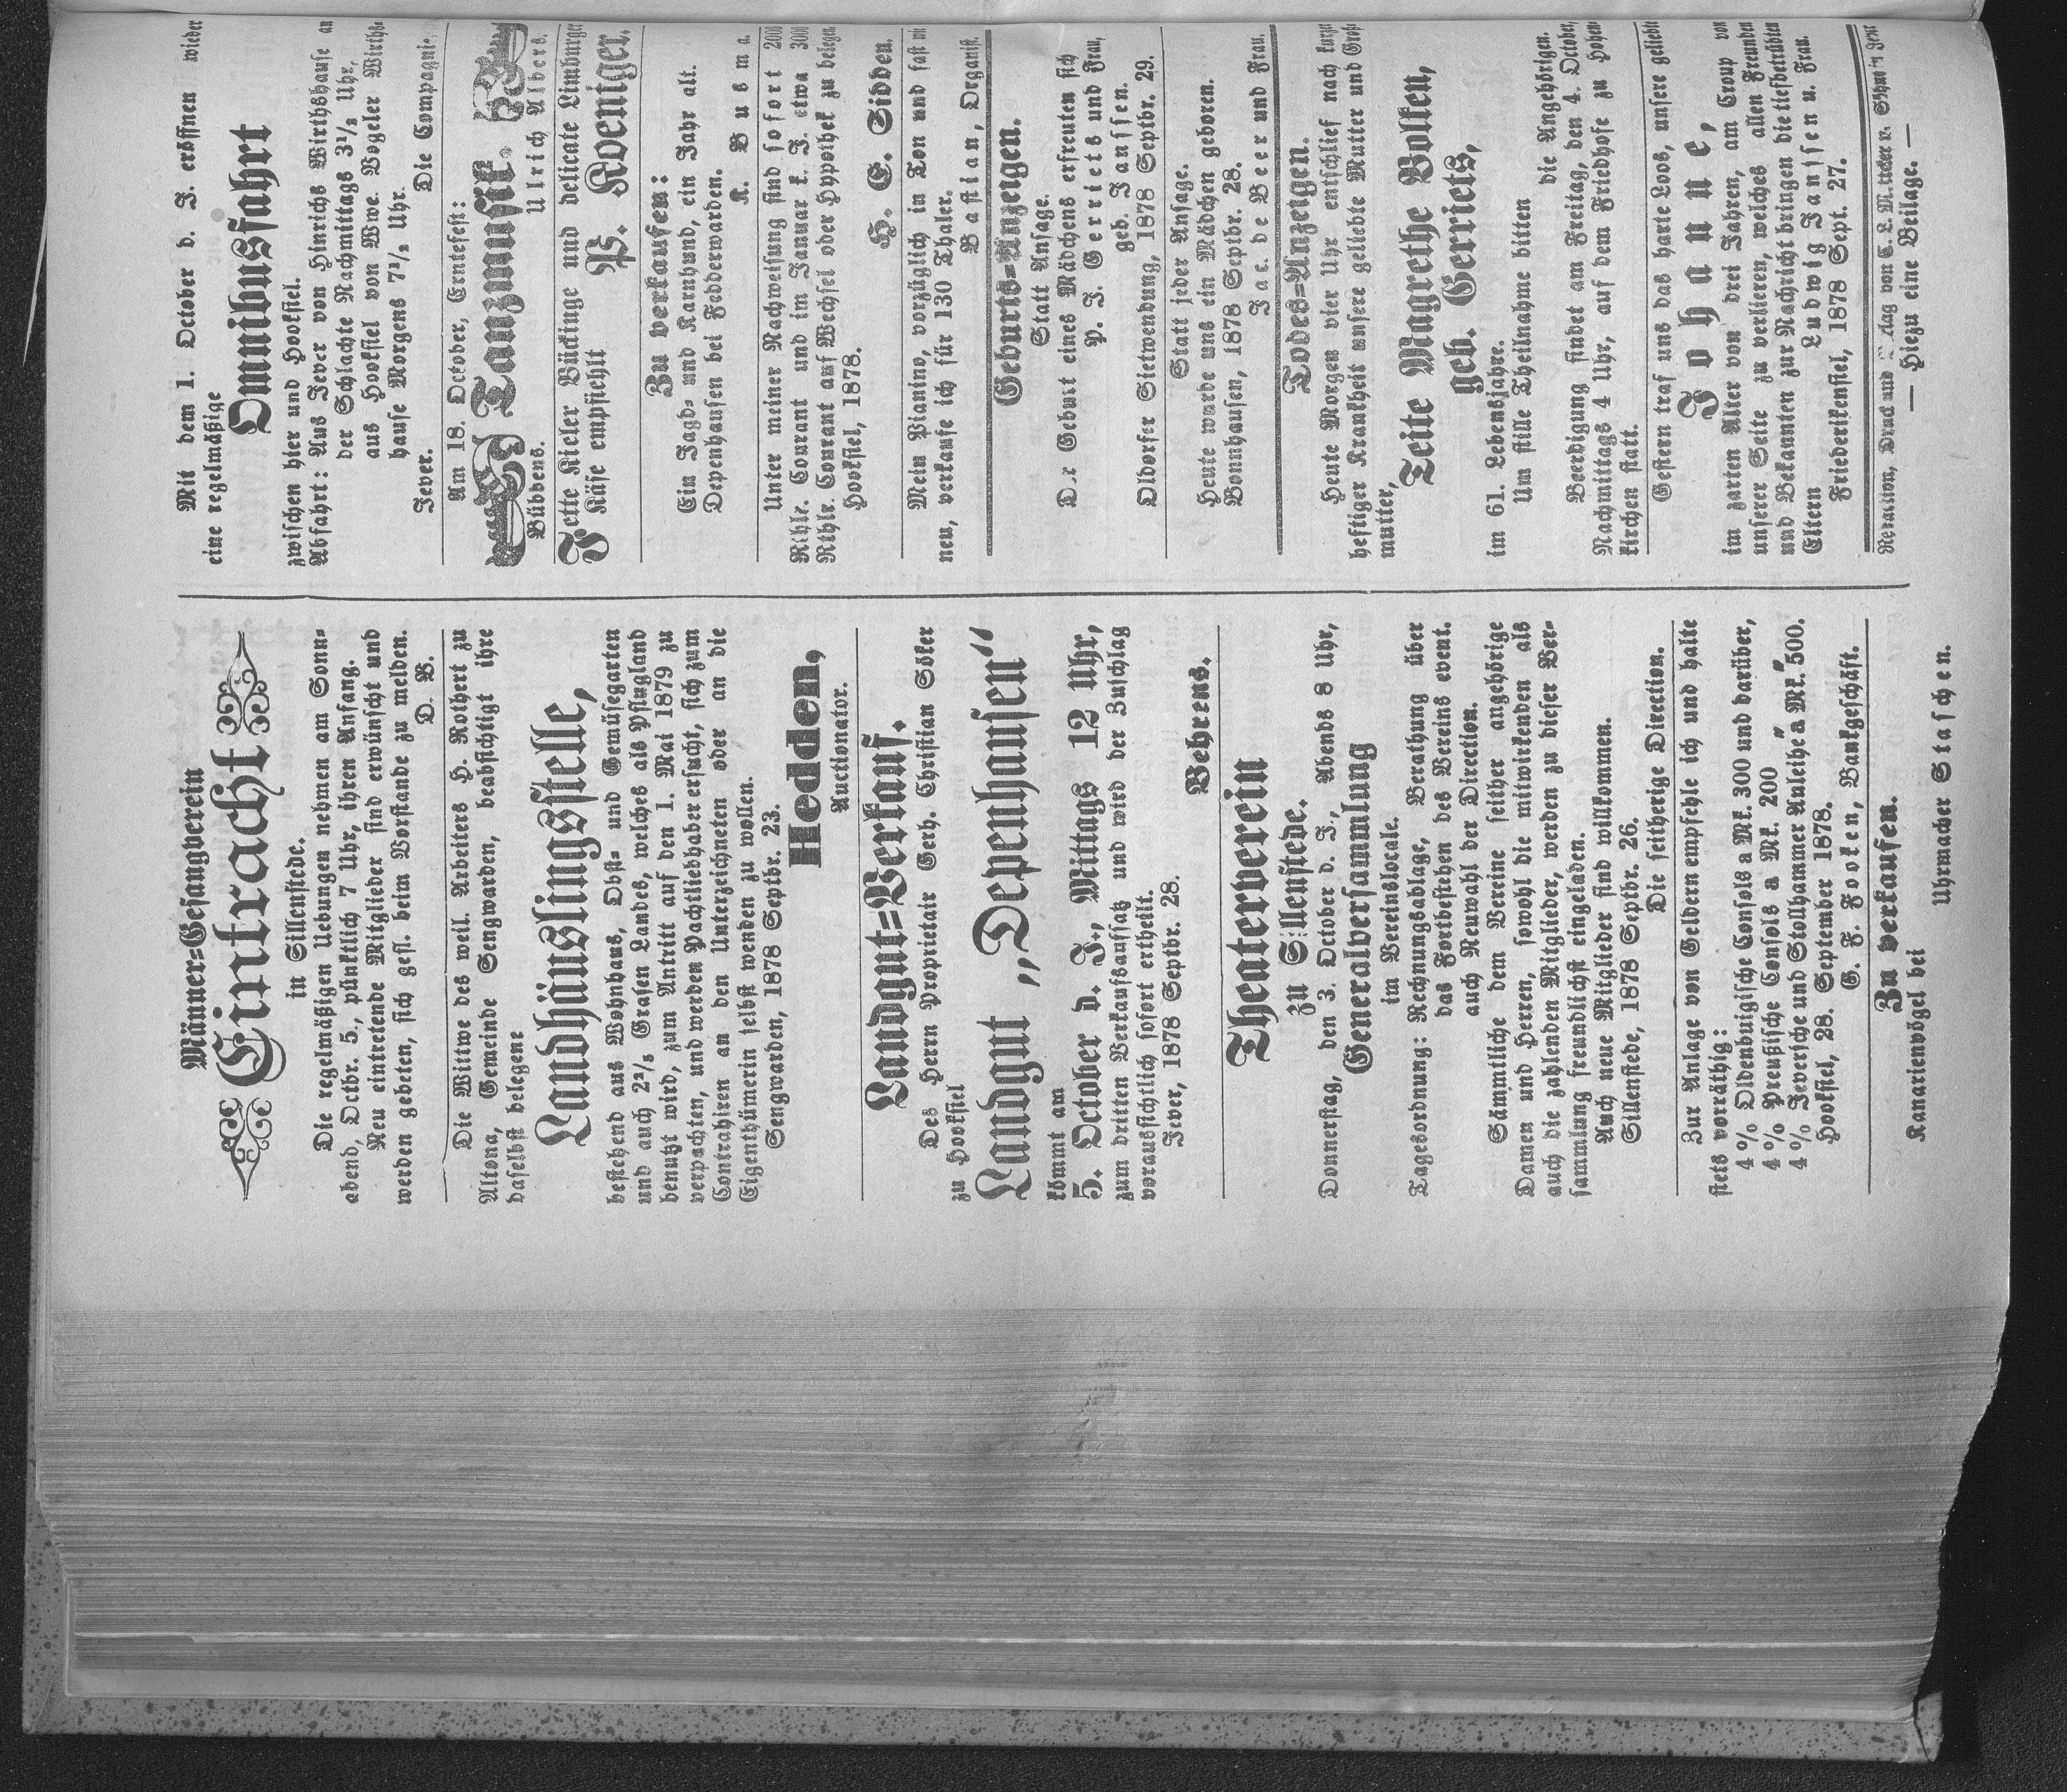 Männer=Gesangverein
Eintracht
in Sillenstede.
Die regelmäßigen Uebungen nehmen am Sonn-
abend, Octbr. 5., pünktlich 7 Uhr, ihren Anfang.
Neu eintretende Mitglieder sind erwünscht und
werden gebeten, sich gefl. beim Vorstande zu melden.
D. V.
Die Wittwe des weil. Arbeiters H. Rothert zu
Altona, Gemeinde Sengwarden, beabsichtigt ihre
daselbst belegene
Landhäuslingsstelle,
bestehend aus Wohnhaus, Obst- und Gemüsegarten
und auch 2²/₃ Grasen Landes, welches als Pflugland
benutzt wird, zum Antritt auf den 1. Mai 1879 zu
verpachten, und werden Pachtliebhaber ersucht, sich zum
Contrahiren an den Unterzeichneten oder an die
Eigenthümerin selbst wenden zu wollen.
Sengwarden, 1878 Septbr. 23.
Hedden,
Auctionator.
Landgut=Verkauf.
Des Herrn Proprietair Gerh. Christian Söker
zu Hooksiel
Landgut „Depenhausen“
kömmt am
5. October d. J., Mittags 12 Uhr,
zum dritten Verkaufsaufsatz und wird der Zuschlag
voraussichtlich sofort ertheilt.
Jever, 1878 Septbr. 28.
Behrens.
Theaterverein
zu Sillenstede.
Donnerstag, den 3. October d. J., Abends 8 Uhr,
Generalversammlung
im Vereinslocale.
Tagesordnung: Rechnungsablage, Berathung über
das Fortbestehen des Vereins event.
auch Neuwahl der Direction.
Sämmtliche dem Vereine seither angehörige
Damen und Herren, sowohl die mitwirkenden als
auch die zahlenden Mitglieder, werden zu dieser Ver-
sammlung freundlichst eingeladen.
Auch neue Mitglieder sind willkommen.
Sillenstede, 1878 Septbr. 26.
Die seitherige Direction.
Zur Anlage von Geldern empfehle ich und halte
stets vorräthig:
4 % Oldenburgische Consols a Mk. 300 und darüber,
4 % Preußische Consols a Mk. 200 " "
4 % Jeversche und Stollhammer Anleihe a Mk. 500.
Hooksiel, 28. September 1878.
G. F. Fooken, Bankgeschäft.
Zu verkaufen.
Kanarienvögel bei
Uhrmacher Staschen.
Mit dem 1. October d. J. eröffnen wieder
eine regelmäßige
Omnibusfahrt
zwischen hier und Hooksiel.
Abfahrt: Aus Jever von Hinrichs Wirthshause an
der Schlachte Nachmittags 3½ Uhr,
aus Hooksiel von Wwe. Vogeler Wirths-
hause Morgens 7½ Uhr.
Jever. Die Compagnie.
Am 18. October, Erntefest:
Tanzmusik.
Bübbens. Ulrich Albers.
Fette Kieler Bückinge und delicate Limburger
Käse empfiehlt P. Koeniger.
Zu verkaufen:
Ein Jagd- und Karnhund, ein Jahr alt.
Depenhausen bei Fedderwarden.
K. Busma.
Unter meiner Nachweisung sind sofort 2000
Rthlr. Courant und im Januar k. J. etwa 3000
Rthlr. Courant auf Wechsel oder Hypothek zu belegen.
Hooksiel, 1878.
H. E. Sidden.
Mein Pianino, vorzüglich in Ton und fast wie
neu, verkaufe ich für 130 Thaler.
Bastian, Organist.
Geburts=Anzeigen.
Statt Ansage.
Der Geburt eines Mädchens erfreuten sich
P. J. Gerriets und Frau,
geb. Janssen.
Oldorfer Sietwendung, 1878 Septbr. 29.
Statt jeder Ansage.
Heute wurde uns ein Mädchen geboren.
Bonnhausen, 1878 Septbr. 28.
Jac. de Beer und Frau.
Todes=Anzeigen.
Heute Morgen vier Uhr entschlief nach kurzer
heftiger Krankheit unsere geliebte Mutter und Groß-
mutter,
Teite Magrethe Volken,
geb. Gerriets,
im 61. Lebensjahre.
Um stille Theilnahme bitten
die Angehörigen.
Beerdigung findet am Freitag, den 4. October,
Nachmittags 4 Uhr, auf dem Friedhofe zu Hohen-
kirchen statt.
Gestern traf uns das harte Loos, unsere geliebte
Johanne,
im zarten Alter von drei Jahren, am Croup von
unserer Seite zu verlieren, welches allen Freunden
und Bekannten zur Nachricht bringen die tiefbetrübten
Eltern Ludwig Janssen u. Frau.
Friederikensiel, 1878 Sept. 27.
Redaction, Druck und Verlag von C. L. Mettcker u. Söhne in Jever
— Hiezu eine Beilage. —